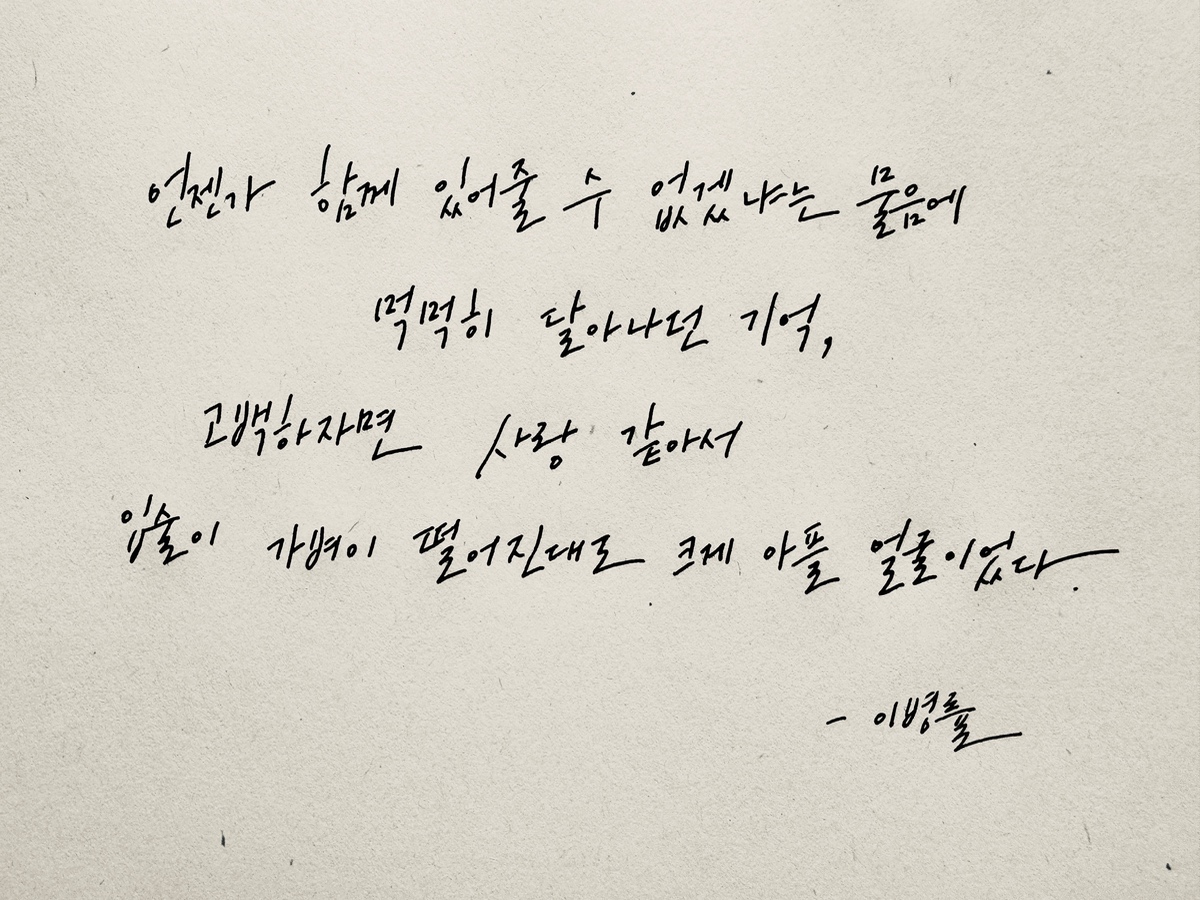 언젠가 함께 있어줄 수 없겠냐는 물음에
먹먹히 달아나던 기억,
고백하자면 사랑 같아서
입술이 가벼이 떨어진대로 크게 아플 얼굴이었다.
- 이병률